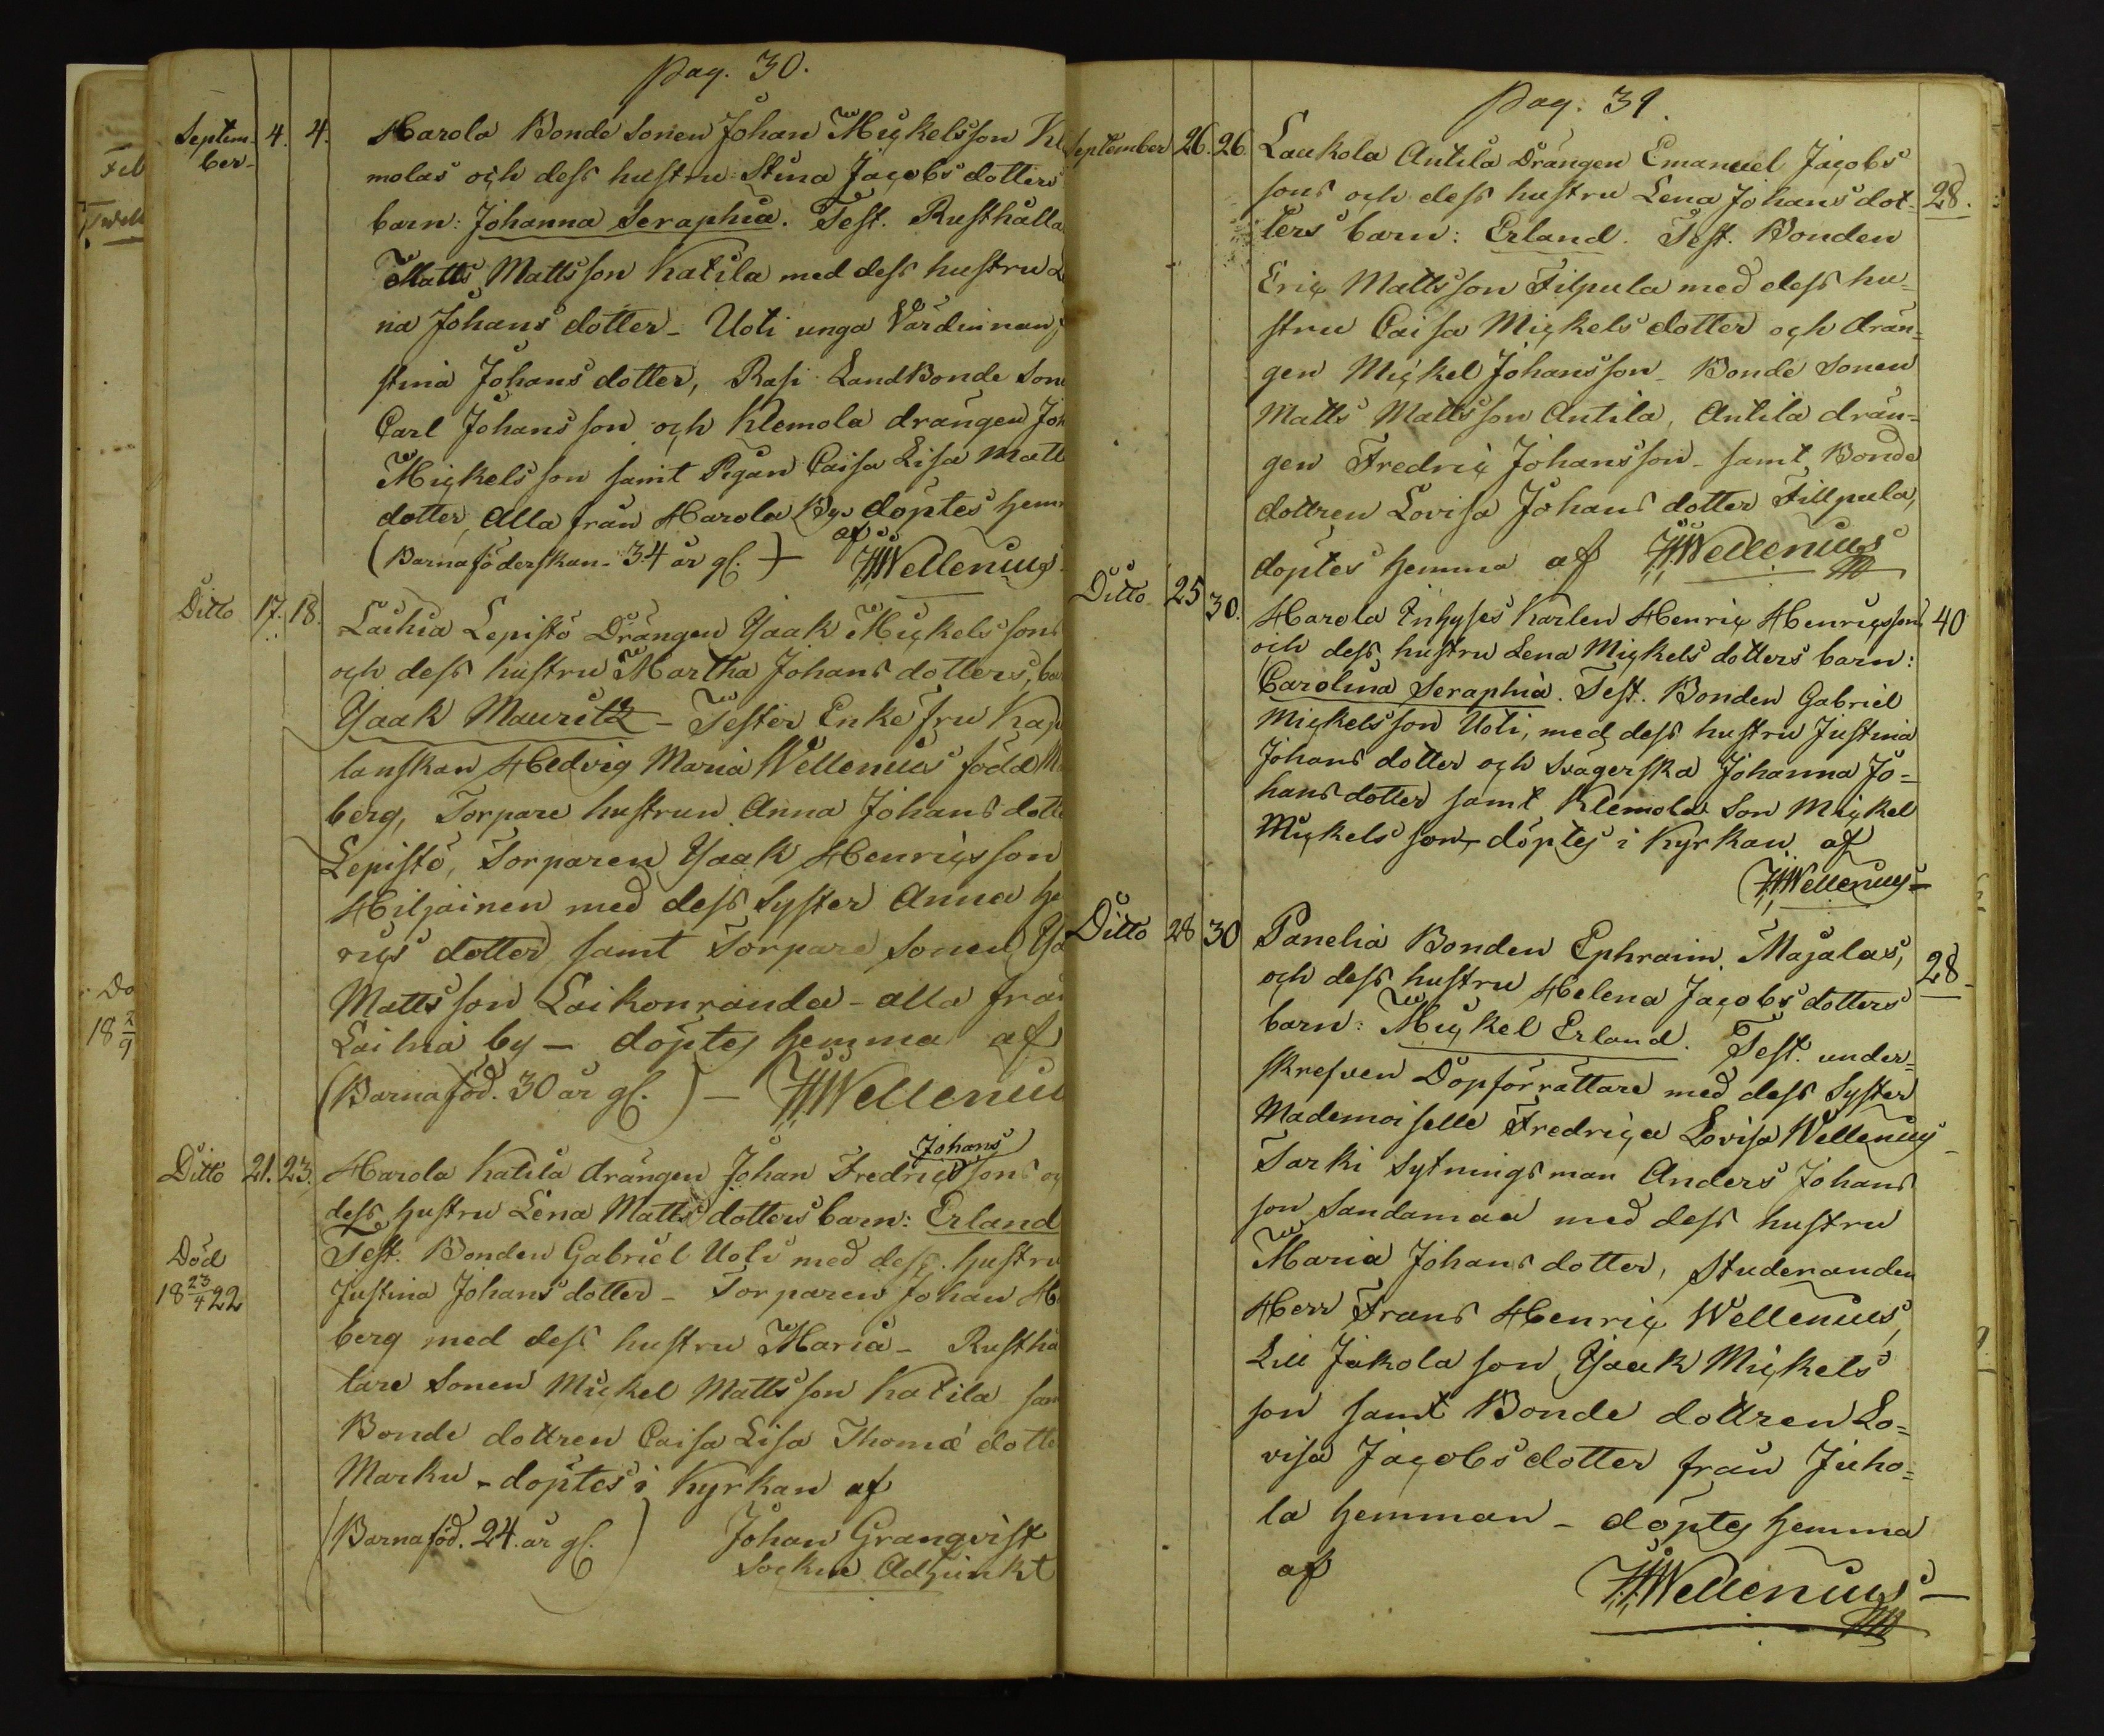 Pag. 30.
Septem- 4. 4. Harola Bonde Sonen Johan Mickelsson Kle
ber- molas och dess hustru Stina Jacobs dotters
barn: Johanna Seraphia. Test. Rusthålla
Matts Mattsson Katila med dess hustru
na Johans dotter - Uoti unga Värdinnan
stina Johans dotter, Rasi LandBonde Son
Carl Johansson och Klemola drängen Joh
Mickelsson samt Pigan Caisa Lisa Matt
dotter, alla från Harola By. döptes hem
(Barnaföderskan 34 år gl.) af HWellenius
Ditto 17. 18. Laihia Lepistö Drängen Ysaak Mickelssons
och dess hustru Martha Johans dotters, bar
Ysaak Mauritz - Tester Enke fru Kap
lanskan Hedvig Maria Wellenius född
berg, Torpare hustrun Anna Johans dotte
Lepistö, Torparen Ysaak Henricsson
Hiljainen med dess Syster Anna He
rics dotter samt Torpare Sonen Ysa
Mattsson Laikonranda - alla från
Laihia by - döptes hemma af
(Barnaföd. 30 år gl.) - HWelleniu
Johans
Ditto 21. 23. Harola Katila drängen Johan Fredricssons oc
dess hustru Lena Matts dotters barn: Erland
Test. Bonden Gabriel Uoti med dess hustru
Död
18 23/4 22
Justina Johans dotter - Torparen Johan
berg med dess hustru Maria - Rusthå
lare Sonen Mickel Mattsson Katila sam
Bonde dottren Caisa Lisa Thomæ dotte
Marku - döptes i Kyrkan af
(Barnaföd. 24 år gl.) Johan Granqvist
Sockne Adjunkt
Feb
Do
18
Pag. 31.
September 26. 26. Laukola Antila Drängen Emanuel Jacobs
sons och dess hustru Lena Johans dot- 28.
ters barn: Erland. Test. Bonden
Eric Mattsson Filpula med dess hu-
stru Caisa Mickels dotter och drän-
gen Mickel Johansson - Bonde Sonen
Matts Mattsson Antila, Antila drän-
gen Fredric Johansson - samt Bonde
dottren Lovisa Johans dotter Fillpula,
döptes hemma af HWellenius
Ditto 25 30. Harola Inhyses Karlen Henric Henricssons 40
och dess hustru Lena Mickels dotters barn:
Carolina Seraphia. Test. Bonden Gabriel
Mickelsson Uoti, med dess hustru Justina
Johans dotter och Svägerska Johanna Jo-
hans dotter samt Klemola Son Mickel
Mickelsson, döptes i Kyrkan af
HWellenius -
Ditto 28 30 Panelia Bonden Ephraim Majalas, 28
och dess hustru Helena Jacobs dotters
barn: Mickel Erland. Test. under-
skrefven Dopförrättare med dess Syster
Mademoiselle Fredrica Lovisa Wellenius -
Sarki Sytningsman Anders Johans
son Sandamaa med dess hustru
Maria Johans dotter, Studeranden
Herr Frans Henric Wellenius,
Lill Jakola son Ysaak Mickels
son samt Bonde dottren Lo-
visa Jacobs dotter från Juho-
la hemman - döptes hemma
af HWellenius -